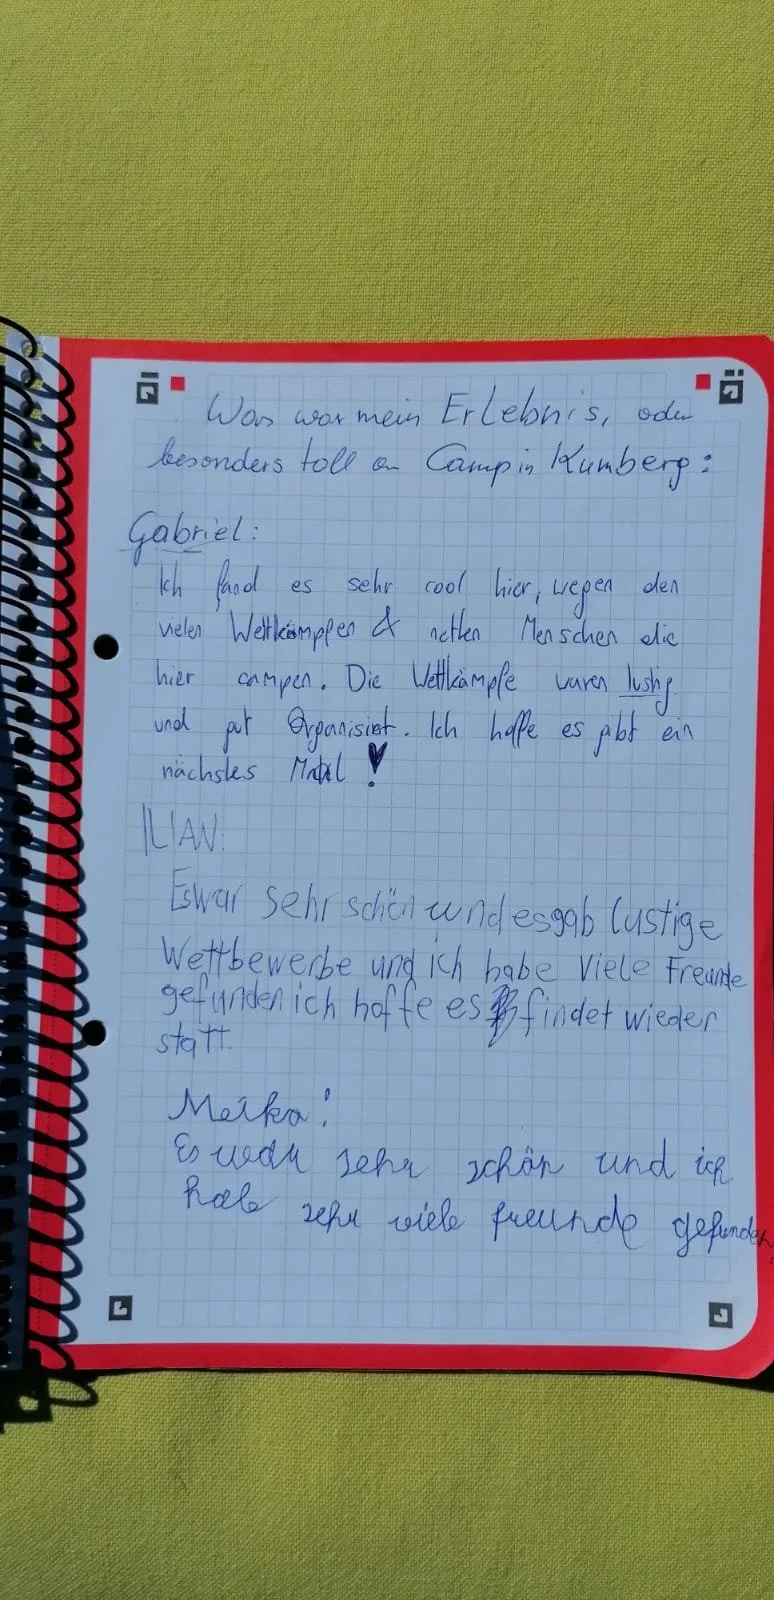 Was war mein Erlebnis, oder
besonders toll an Camp in Kumberg:
Gabriel:
Ich fand es sehr cool hier, wegen den
vielen Wettkämpfen & netten Menschen die
hier campen. Die Wettkämpfe waren lustig
und gut Organisiert. Ich hoffe es gibt ein
nächstes Mal!
ILIAN:
Es war sehr schön und es gab lustige
Wettbewerbe und ich habe viele Freunde
gefunden ich hoffe es findet wieder
statt.
Meika:
Es war sehr schön und ich
habe sehr viele freunde gefunden.